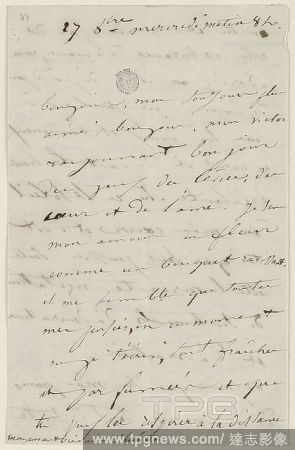 27 8bre mercredi matin 8h.
bonjour, mon toujours plus
aimé bonjour, mon victor
rayonnant, bonjour
des yeux des lèvres, du
cœur et de l'âme. Je sens
mon amour en fleur
comme un bouquet
il me semble que toutes
mes pensées, en ce moment
où je t'écris, sont fraîches
et parfumées et que
tu peux les respirer à la distance
TPG
www.tpgnews.com/達志影像